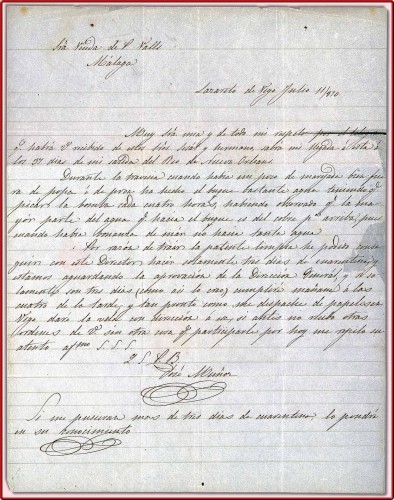 Sra Viuda de P Valls
Málaga
Lazareto de Vigo Julio 11/870
Muy Sra mia y de todo mi respeto por
qe habrá Vd recibido de estos Sres y hermana sabrá mi llegada á esta á
los 37 dias de mi salida del Rio de Nueva Orleans.
Durante la travesia cuando habia un poco de marejada bien fuera
de popa ó de proa ha hecho el buque bastante agua teniendo qe
picar la bomba cada cuatro horas, habiendo observado qe la ma
yor parte del agua qe hacia el buque es del cobre pa arriba, pues
cuando habia bonanza de mar no hacia tanta agua.
Por razon de traer la patente limpia he podido conse
guir con este Director hacer solamente tres dias de cuarentena, y
estamos aguardando la aprovacion de la Direccion General, y si so
lamente son tres dias (como asi lo creo) cumpliré mañana á las
cuatro de la tarde, y tan pronto como me despache de papeles en
Vigo daré la vela con direccion á esa, si antes no recibo otras
ordenes de Vd sin otra cosa qe participarle por hoy me repito su
atento afmo S. S. S.
Q. S. P. B.
José Muñoz
Si me pusieran mas de tres dias de cuarentena, lo pondré
en su conocimiento